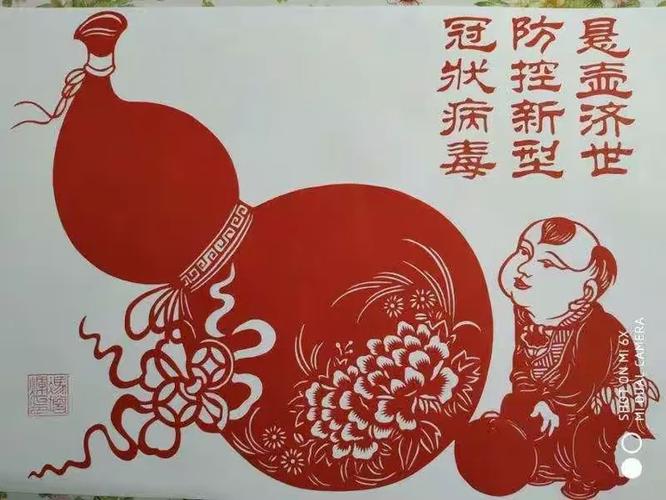 悬壶济世
防控新型
冠状病毒
SHOT ON MI 6X
MI DUAL CAMERA